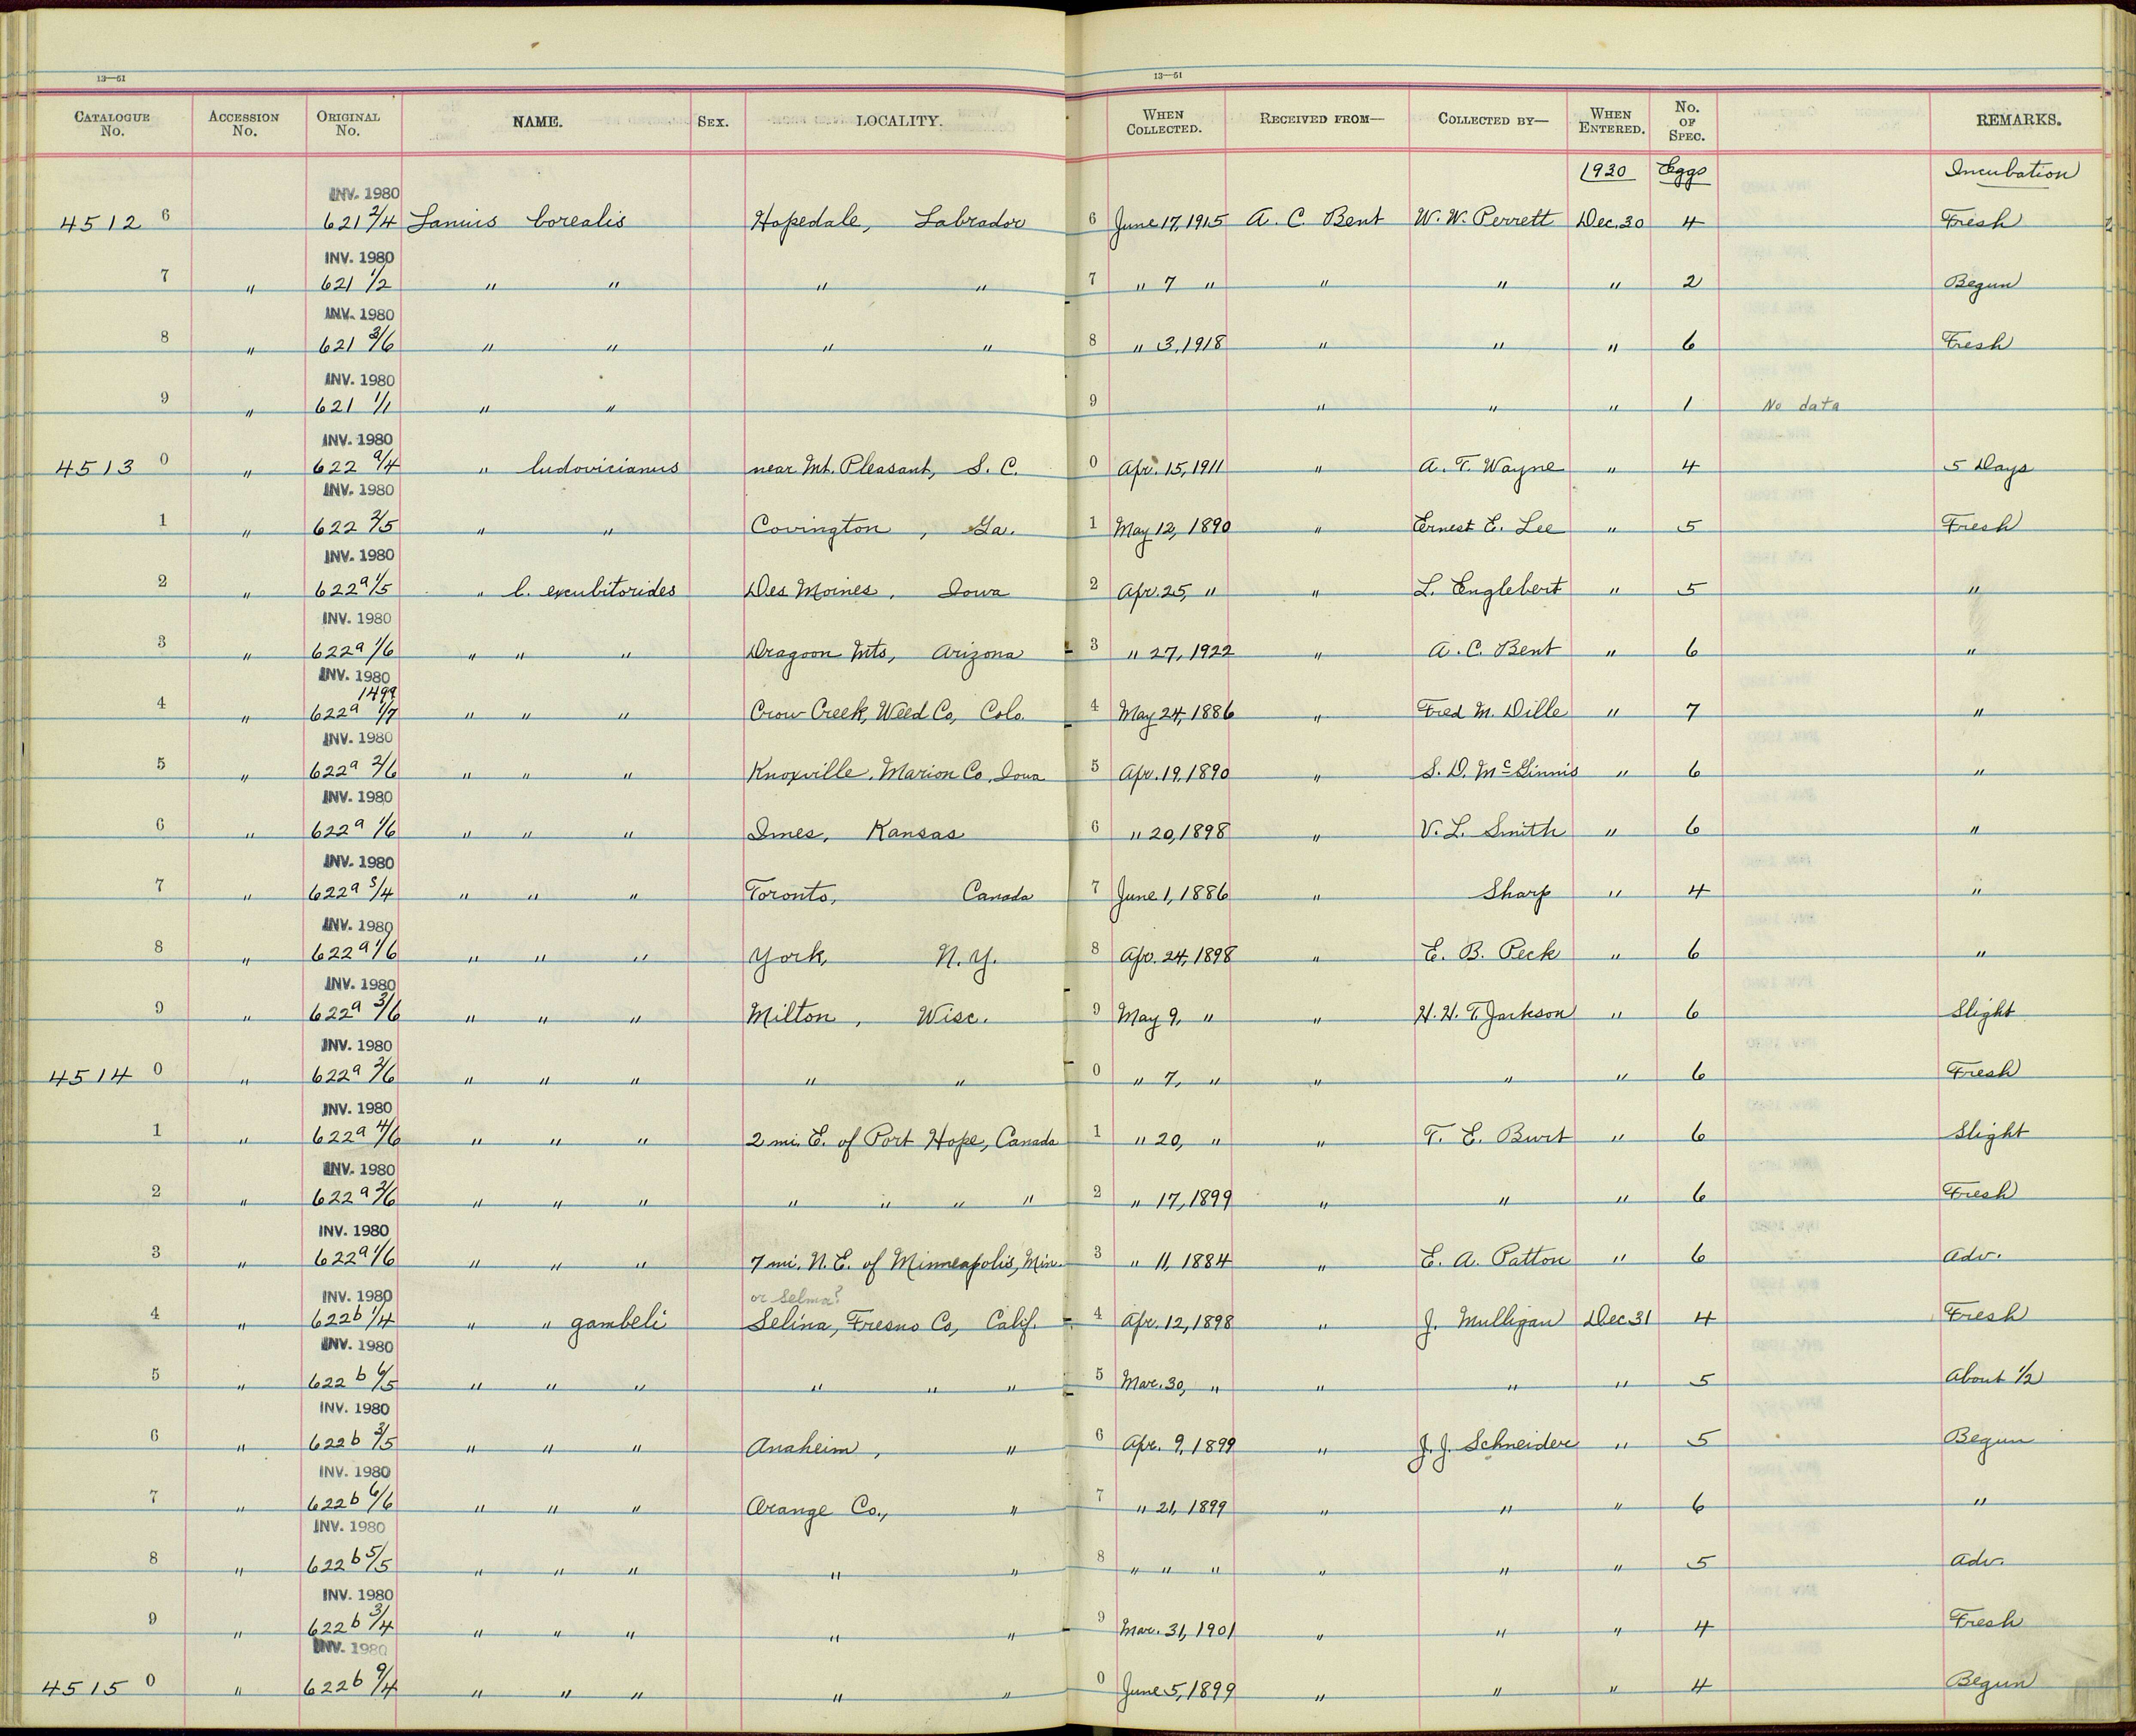 13—51 13—51
CATALOGUE No. ACCESSION No. ORIGINAL No. NAME. SEX. LOCALITY. WHEN COLLECTED. RECEIVED FROM— COLLECTED BY— WHEN ENTERED. No. OF SPEC. REMARKS.
1930 Eggs Incubation
INV. 1980
4512 6 621 2/4 Lanius borealis Hopedale, Labrador 6 June 17, 1915 A. C. Bent W. W. Perrett Dec. 30 4 Fresh
INV. 1980
7 " 621 1/2 " " " " 7 " 7 " " " " 2 Begun
INV. 1980
8 " 621 3/6 " " " " 8 " 3, 1918 " " " 6 Fresh
INV. 1980
9 " 621 1/1 " " 9 " " " 1 No data
INV. 1980
4513 0 " 622 9/4 " ludovicianus near Mt. Pleasant, S. C. 0 Apr. 15, 1911 " A. T. Wayne " 4 5 Days
INV. 1980
1 " 622 2/5 " " Covington, Ga. 1 May 12, 1890 " Ernest E. Lee " 5 Fresh
INV. 1980
2 " 622a 1/5 " l. excubitorides Des Moines, Iowa 2 Apr. 25, " " L. Englebert " 5 "
INV. 1980
3 " 622a 1/6 " " " Dragoon Mts, Arizona 3 " 27, 1922 " A. C. Bent " 6 "
INV. 1980
1499
4 " 622a 1/7 " " " Crow Creek, Weed Co, Colo. 4 May 24, 1886 " Fred M. Dille " 7 "
INV. 1980
5 " 622a 2/6 " " " Knoxville, Marion Co, Iowa 5 Apr. 19, 1890 " S. D. McGinnis " 6 "
INV. 1980
6 " 622a 1/6 " " " Imes, Kansas 6 " 20, 1898 " V. L. Smith " 6 "
INV. 1980
7 " 622a 5/4 " " " Toronto, Canada 7 June 1, 1886 " Sharp " 4 "
INV. 1980
8 " 622a 1/6 " " " York, N. Y. 8 Apr. 24, 1898 " E. B. Peck " 6 "
INV. 1980
9 " 622a 3/6 " " " Milton, Wisc. 9 May 9, " " H. H. T. Jackson " 6 Slight
INV. 1980
4514 0 " 622a 2/6 " " " " " 0 " 7, " " " " 6 Fresh
INV. 1980
1 " 622a 4/6 " " " 2 mi. E. of Port Hope, Canada 1 " 20, " " T. E. Burt " 6 Slight
INV. 1980
2 " 622a 2/6 " " " " " " " 2 " 17, 1899 " " " 6 Fresh
INV. 1980
3 " 622a 1/6 " " " 7 mi. N. E. of Minneapolis, Min. 3 " 11, 1884 " E. A. Patton " 6 Adv.
INV. 1980 or Selma?
4 " 622b 1/4 " " gambeli Selina, Fresno Co, Calif. 4 Apr. 12, 1898 " J. Mulligan Dec 31 4 Fresh
INV. 1980
5 " 622b 6/5 " " " " " " 5 Mar. 30, " " " " 5 About 1/2
INV. 1980
6 " 622b 3/5 " " " Anaheim, " 6 Apr. 9, 1899 " J. J. Schneider " 5 Begun
INV. 1980
7 " 622b 6/6 " " " Orange Co., " 7 " 21, 1899 " " " 6 "
INV. 1980
8 " 622b 5/5 " " " " " 8 " " " " " " 5 Adv.
INV. 1980
9 " 622b 3/4 " " " " " 9 Mar. 31, 1901 " " " 4 Fresh
INV. 1980
4515 0 " 622b 9/4 " " " " " 0 June 5, 1899 " " " 4 Begun